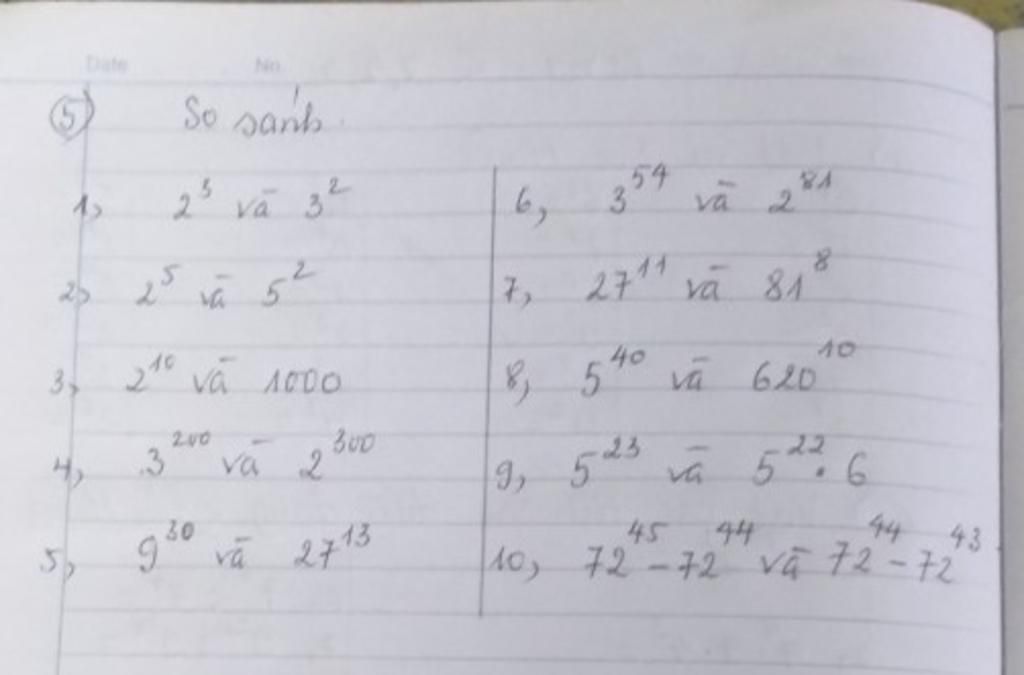 Date No.
⑤ So sánh.
1, 2³ và 3²
2, 2⁵ và 5²
3, 2¹⁰ và 1000
4, 3²⁰⁰ và 2³⁰⁰
5, 9³⁰ và 27¹³
6, 3⁵⁴ và 2⁸¹
7, 27¹¹ và 81⁸
8, 5⁴⁰ và 620¹⁰
9, 5²³ và 5²² . 6
10, 72⁴⁵ - 72⁴⁴ và 72⁴⁴ - 72⁴³